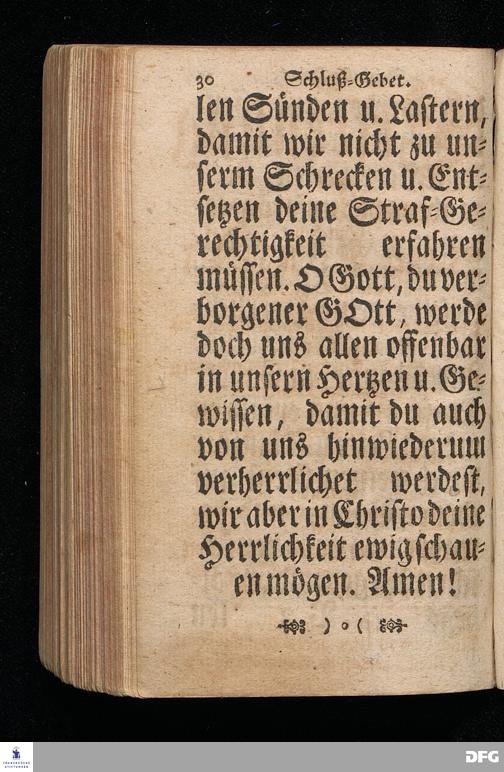 30 Schluß-Gebet.
len Sünden u. Lastern,
damit wir nicht zu un-
serm Schrecken u. Ent-
setzen deine Straf-Ge-
rechtigkeit erfahren
müssen. O Gott, du ver-
borgener GOtt, werde
doch uns allen offenbar
in unsern Hertzen u. Ge-
wissen, damit du auch
von uns hinwiederum
verherrlichet werdest,
wir aber in Christo deine
Herrlichkeit ewig schau-
en mögen. Amen!
) o (
FRANCKESCHE
STIFTUNGEN
DFG